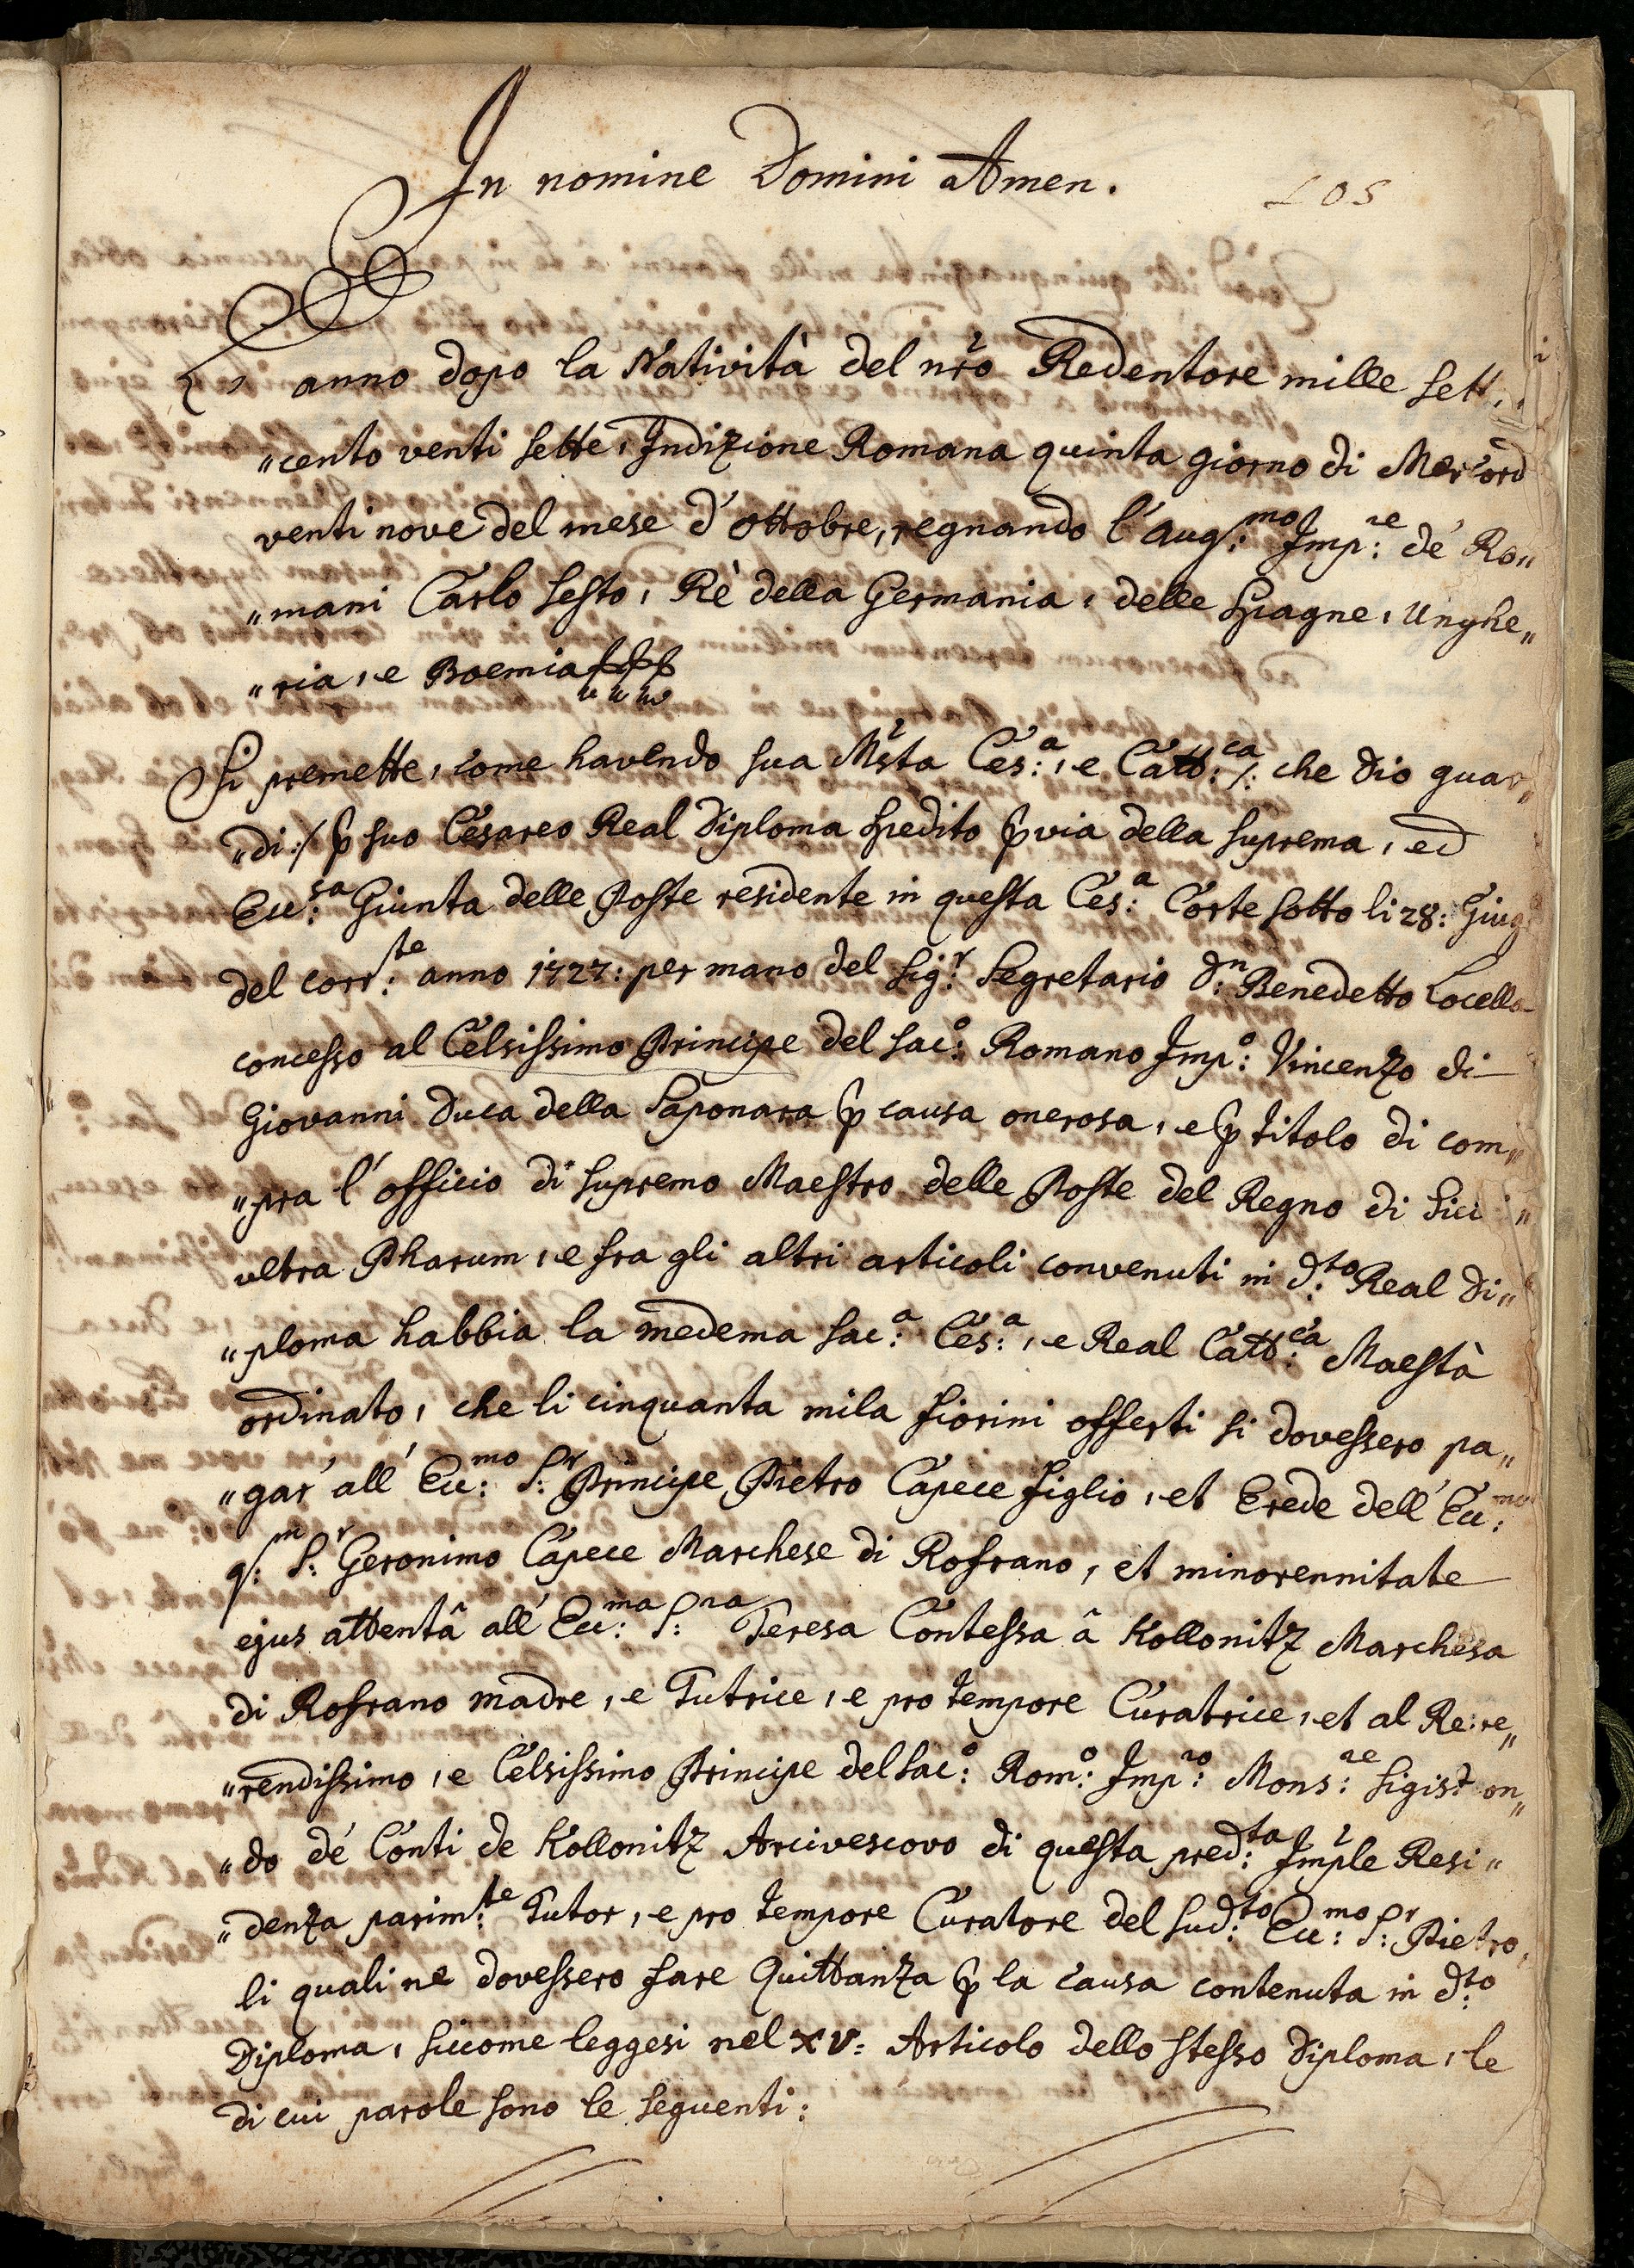 In nomine Domini Amen.
L' anno dopo la Natività del nr̃o Redentore mille sett„
„cento venti sette, Indizione Romana quinta giorno di Mercord
venti nove del mese d'ottobre, regnando l'Aug:mo Imp:re de' Ro„
„mani Carlo Sesto, Rè della Germania, delle Spagne, Unghe„
„ria, e Boemia
Si premette, come havendo sua Ms̃ta Ces:a, e Catt:ca /: che Dio guar„
„di :/ ꝑ suo Cesareo Real Diploma spedito ꝑ via della suprema, ed
Ecc:sa Giunta delle Poste residente in questa Ces:a Corte sotto li 28: Giug
del corr:te anno 1727: per mano del Sig:r Segretario D:n Benedetto Locella
concesso al Celsissimo Principe del Sac:o Romano Imp:o Vincenzo di
Giovanni Duca della Saponara ꝑ causa onerosa, e ꝑ titolo di com„
„pra l'officio di supremo Maestro delle Poste del Regno di Sici
ultra Pharum, e fra gli altri articoli convenuti in d:to Real Di„
„ploma habbia la medema Sac:a Ces:a, e Real Catt:ca Maestà
ordinato, che li cinquanta mila fiorini offerti si dovessero pa„
„gar' all' Ecc:mo S:r Principe Pietro Capece figlio, et Erede dell' Ecc:mo
q:m S:r Geronimo Capece Marchese di Rofrano, et minorennitate
ejus attentâ all' Ecc:ma S:ra Teresa Contessa â Kollonitz Marchesa
di Rofrano madre, e Tutrice, e pro tempore Curatrice, et al Reve„
„rendissimo, e Celsissimo Principe del Sac:o Rom:o Imp:ro Mons:re Sigismon„
„do de' Conti de Kollonitz Arcivescovo di questa pred:ta Imp̃le Resi„
„denza parim:te Tutor, e pro tempore Curatore del sud:to Ecc:mo S:r Pietro,
li quali ne dovessero fare Quittanza ꝑ la causa contenuta in d:to
Diploma, siccome leggesi nel XV: Articolo dello stesso Diploma, le
di cui parole sono le seguenti: